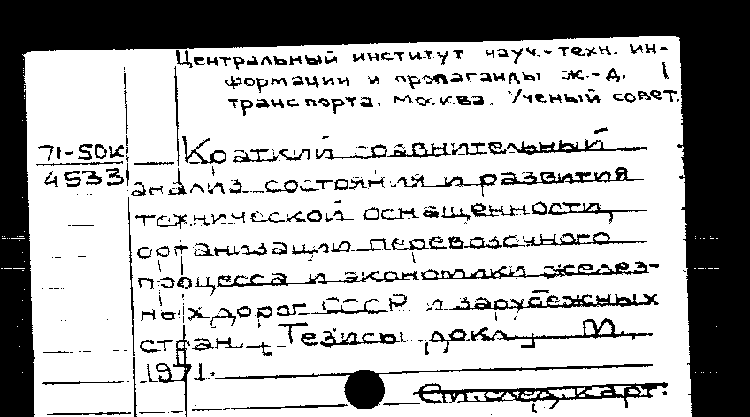 Центральный институт науч.-техн. ин-
формации и пропаганды ж.-д. 1
транспорта. Москва. Ученый совет.
71-5DK Краткий сравнительный
4533 анализ состояния и развития
технической оснащенности,
организации перевозочного
процесса и экономики желез-
ных дорог СССР и зарубежных
стран. Тезисы докл. М.,
1971.
См.след.карт.